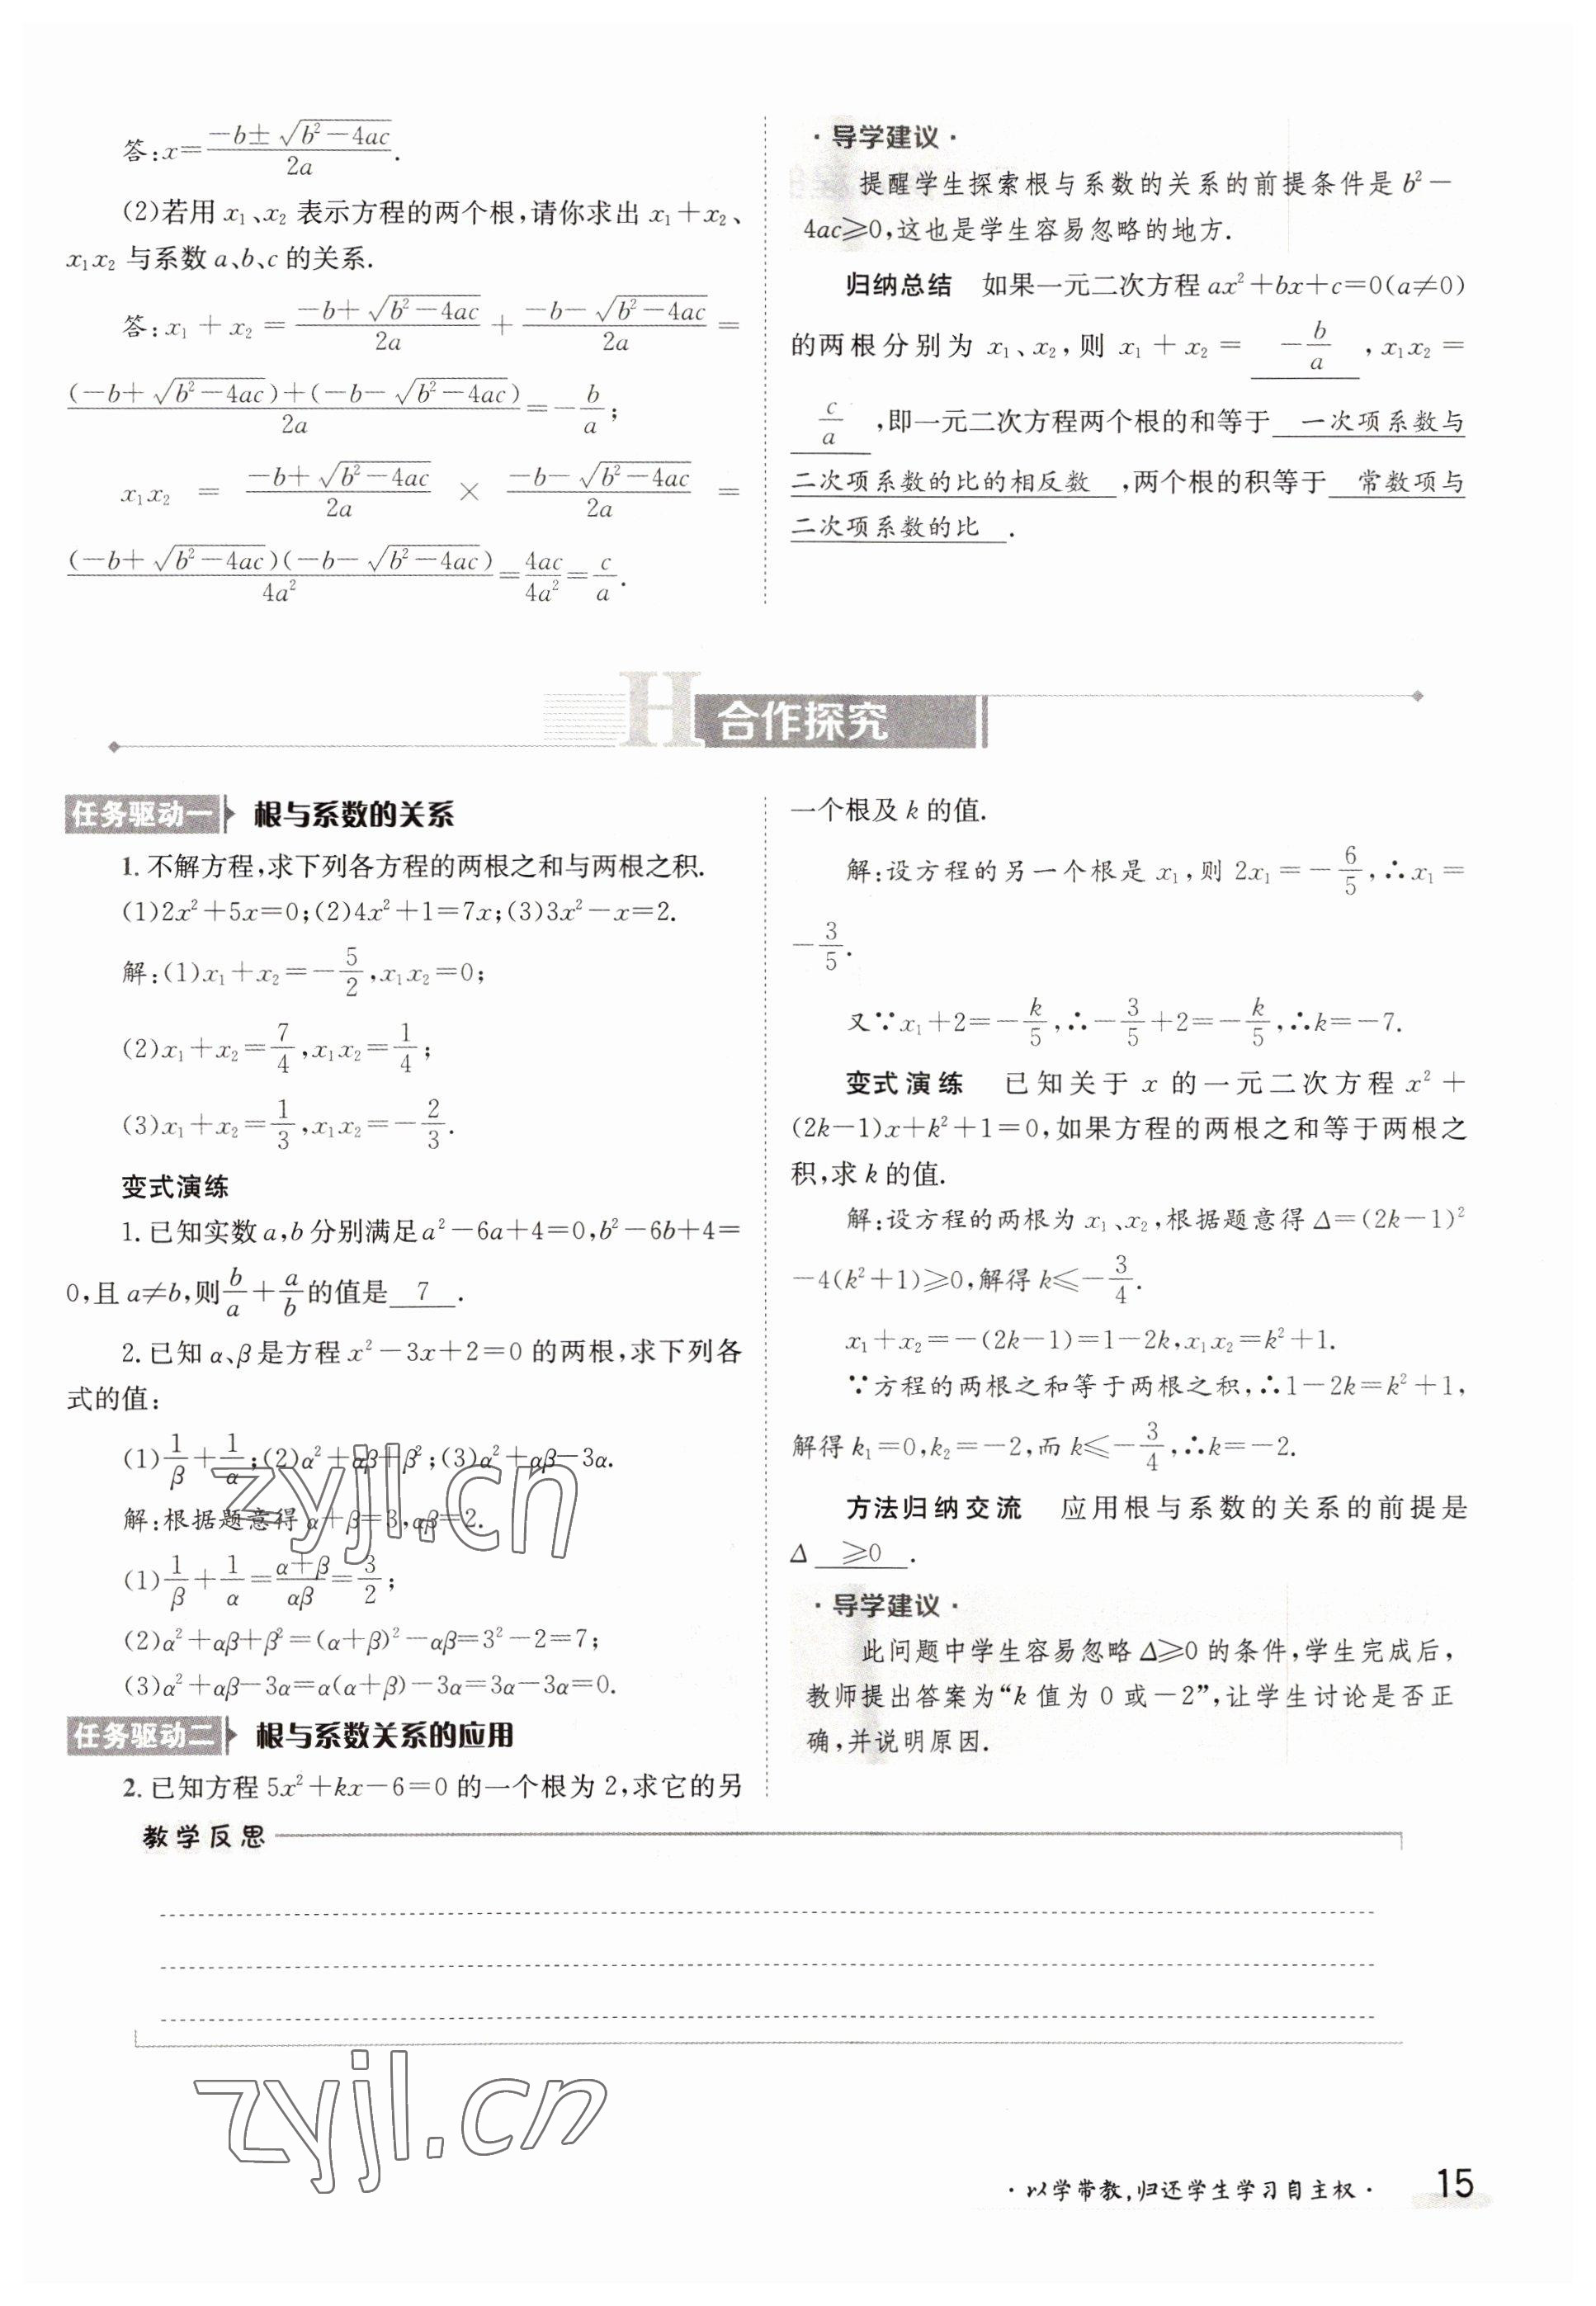 答:x=(-b±√(b²-4ac))/(2a).
(2)若用 x₁、x₂ 表示方程的两个根,请你求出 x₁+x₂、
x₁x₂ 与系数 a、b、c 的关系.
答:x₁+x₂=(-b+√(b²-4ac))/(2a)+(-b-√(b²-4ac))/(2a)=
((-b+√(b²-4ac))+(-b-√(b²-4ac)))/(2a)=-b/a;
x₁x₂=(-b+√(b²-4ac))/(2a)×(-b-√(b²-4ac))/(2a)=
((-b+√(b²-4ac))(-b-√(b²-4ac)))/(4a²)=4ac/4a²=c/a.
·导学建议·
提醒学生探索根与系数的关系的前提条件是 b²-
4ac≥0,这也是学生容易忽略的地方.
归纳总结 如果一元二次方程 ax²+bx+c=0(a≠0)
的两根分别为 x₁、x₂,则 x₁+x₂= -b/a ,x₁x₂=
c/a ,即一元二次方程两个根的和等于 一次项系数与
二次项系数的比的相反数 ,两个根的积等于 常数项与
二次项系数的比 .
H 合作探究
任务驱动一 根与系数的关系
1. 不解方程,求下列各方程的两根之和与两根之积.
(1)2x²+5x=0;(2)4x²+1=7x;(3)3x²-x=2.
解:(1)x₁+x₂=-5/2,x₁x₂=0;
(2)x₁+x₂=7/4,x₁x₂=1/4;
(3)x₁+x₂=1/3,x₁x₂=-2/3.
变式演练
1. 已知实数 a,b 分别满足 a²-6a+4=0,b²-6b+4=
0,且 a≠b,则 b/a+a/b 的值是 7 .
2. 已知 α、β 是方程 x²-3x+2=0 的两根,求下列各
式的值:
(1)1/β+1/α;(2)α²+αβ+β²;(3)α²+αβ-3α.
解:根据题意得 α+β=3,αβ=2.
(1)1/β+1/α=(α+β)/αβ=3/2;
(2)α²+αβ+β²=(α+β)²-αβ=3²-2=7;
(3)α²+αβ-3α=α(α+β)-3α=3α-3α=0.
任务驱动二 根与系数关系的应用
2. 已知方程 5x²+kx-6=0 的一个根为 2,求它的另
一个根及 k 的值.
解:设方程的另一个根是 x₁,则 2x₁=-6/5,∴x₁=
-3/5.
又∵x₁+2=-k/5,∴-3/5+2=-k/5,∴k=-7.
变式演练 已知关于 x 的一元二次方程 x²+
(2k-1)x+k²+1=0,如果方程的两根之和等于两根之
积,求 k 的值.
解:设方程的两根为 x₁、x₂,根据题意得 Δ=(2k-1)²
-4(k²+1)≥0,解得 k≤-3/4.
x₁+x₂=-(2k-1)=1-2k,x₁x₂=k²+1.
∵方程的两根之和等于两根之积,∴1-2k=k²+1,
解得 k₁=0,k₂=-2,而 k≤-3/4,∴k=-2.
方法归纳交流 应用根与系数的关系的前提是
Δ ≥0 .
·导学建议·
此问题中学生容易忽略 Δ≥0 的条件,学生完成后,
教师提出答案为“k 值为 0 或-2”,让学生讨论是否正
确,并说明原因.
教学反思
zyjl.cn
zyjl.cn
·以学带教,归还学生学习自主权· 15